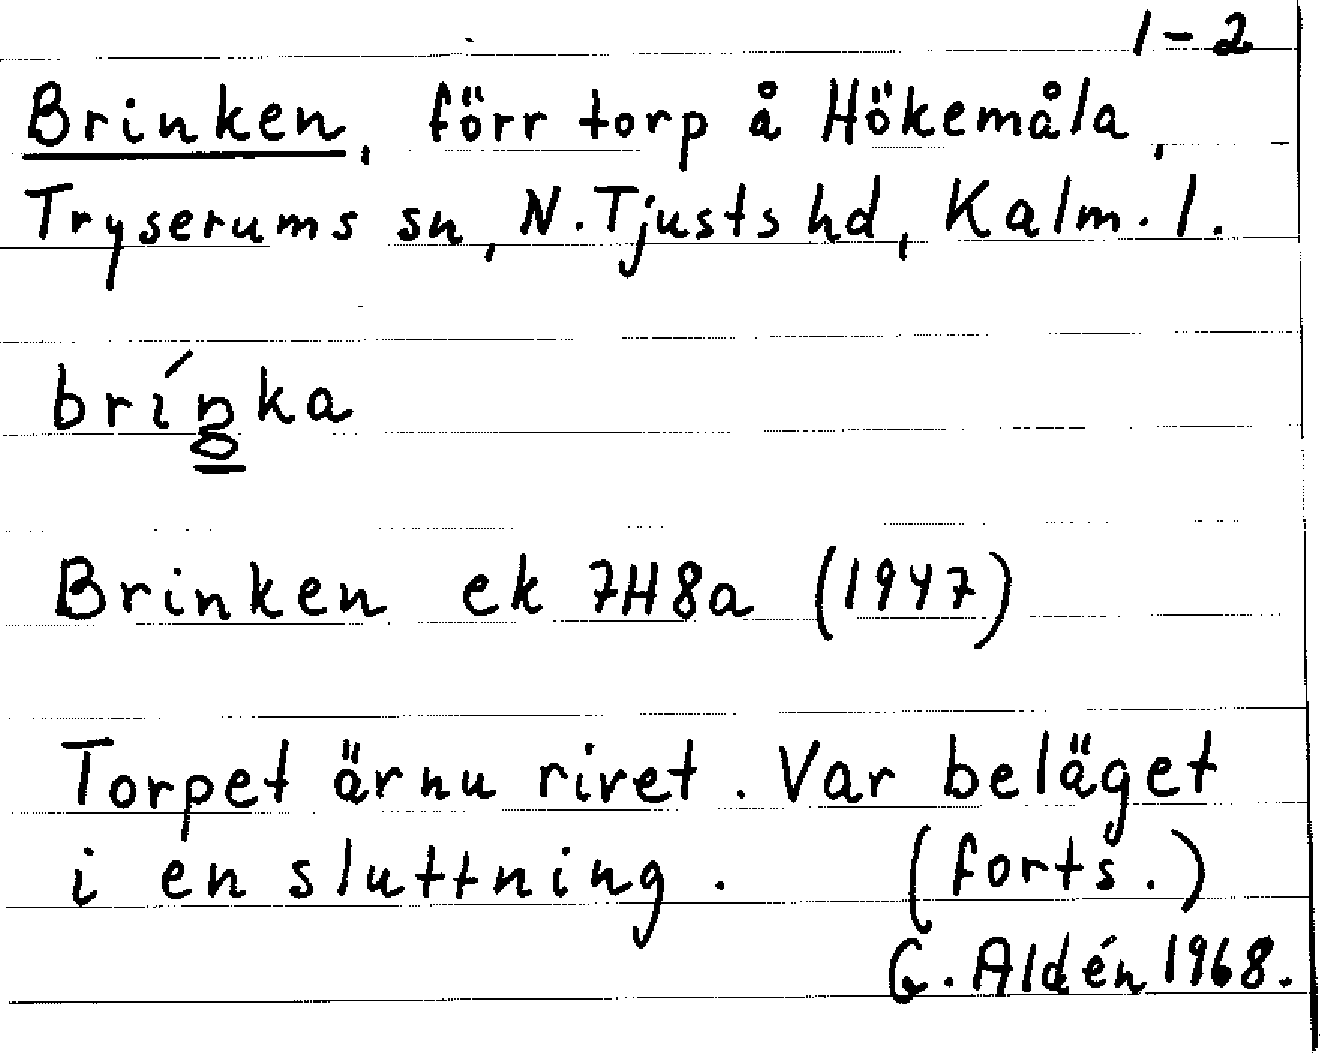 1-2
Brinken, förr torp å Hökemåla,
Tryserums sn, N. Tjusts hd, Kalm. l.
bríŋka
Brinken ek 7H8a (1947)
Torpet är nu rivet. Var beläget
i en sluttning. (forts.)
G. Aldén 1968.